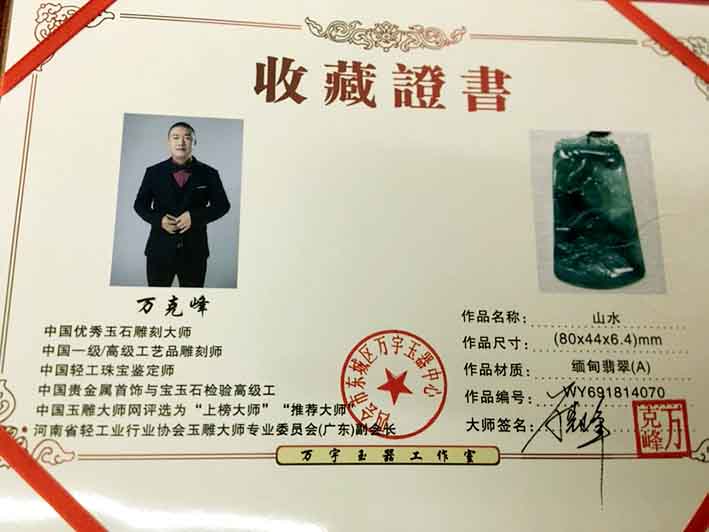 收藏證書
万克峰
中国优秀玉石雕刻大师
中国一级/高级工艺品雕刻师
中国轻工珠宝鉴定师
中国贵金属首饰与宝玉石检验高级工
中国玉雕大师网评选为“上榜大师”“推荐大师”
河南省轻工业行业协会玉雕大师专业委员会(广东)副会长
市东城区万宇玉器中心
作品名称: 山水
作品尺寸: (80x44x6.4)mm
作品材质: 缅甸翡翠(A)
作品编号: WY691814070
大师签名:
万克峰
万宇玉器工作室